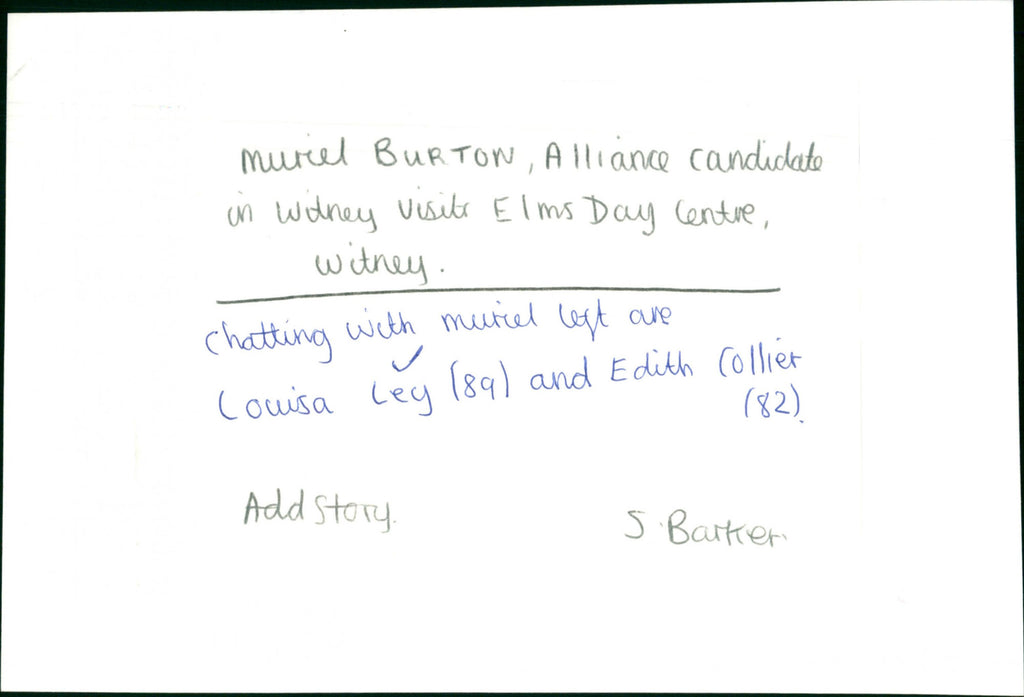 Muriel BURTON, Alliance candidate
in Witney visits Elms Day Centre,
Witney.
Chatting with Muriel left are
Louisa Ley (89) and Edith Collier
(82).
Add Story.
S. Barker.